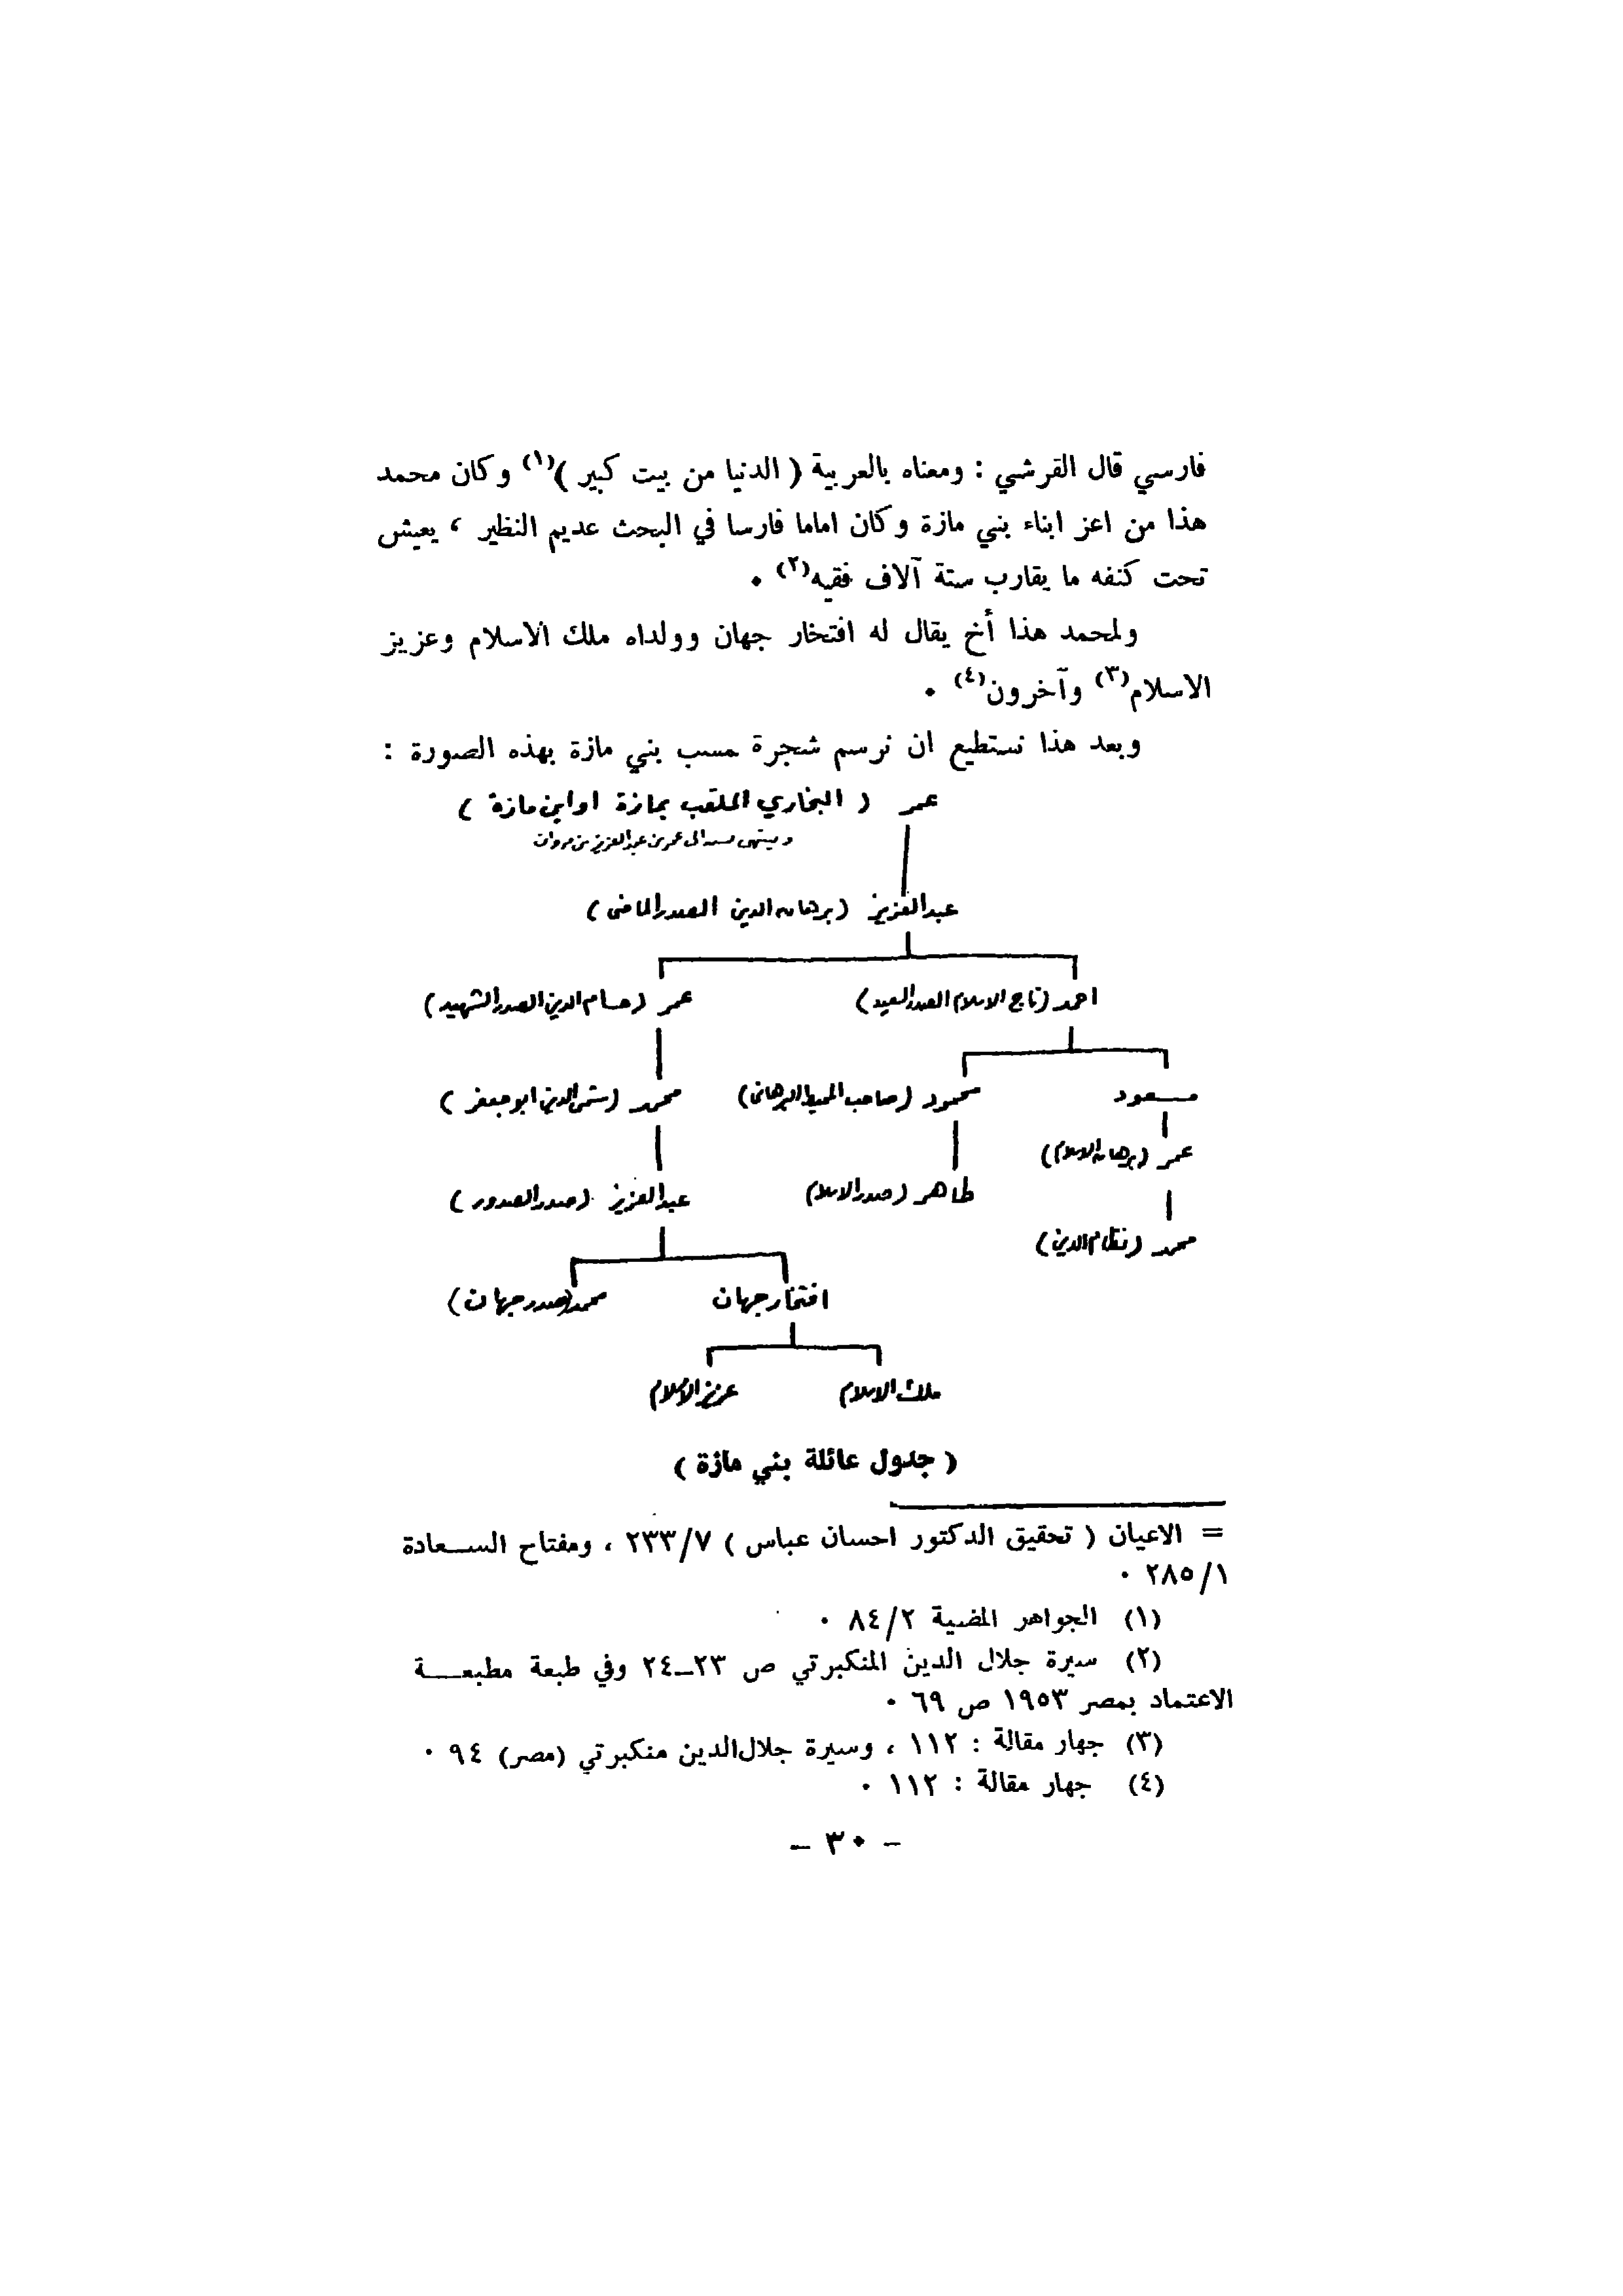 فارسي قال القرشي : ومعناه بالعربية ( الدنيا من بيت كبير )(١) وكان محمد
هذا من اعز ابناء بني مازة وكان اماما فارسا في البحث عديم النظير ، يعيش
تحت كنفه ما يقارب ستة آلاف فقيه(٢) ٠
ولمحمد هذا أخ يقال له افتخار جهان وولداه ملك الاسلام وعزيز
الاسلام(٣) وآخرون(٤) ٠
وبعد هذا نستطيع ان نرسم شجرة نسب بني مازة بهذه الصورة :
عمر ( البخاري الملقب بمازة او ابن مازة )
وينتهي نسبه الى عمر بن عبدالعزيز بن مروان
عبدالعزيز (برهان الدين الصدر الماضى)
احمد (تاج الاسلام الصدر السعيد) عمر (حسام الدين الصدر الشهيد)
مسعود محمود (صاحب المحيط البرهانى) محمد (شمس الدين ابو جعفر)
عمر (برهان الاسلام)
طاهر (صدر الاسلام) عبدالعزيز (صدر الصدور)
محمد (نظام الدين)
افتخار جهان محمد (صدر جهان)
ملك الاسلام عزيز الاسلام
( جدول عائلة بني مازة )
= الاعيان ( تحقيق الدكتور احسان عباس ) ٢٣٣/٧ ، ومفتاح الســعادة
٢٨٥/١ ٠
(١) الجواهر المضية ٨٤/٢ ٠
(٢) سيرة جلال الدين المنكبرتي ص ٢٣ــ٢٤ وفي طبعة مطبعــة
الاعتماد بمصر ١٩٥٣ ص ٦٩ ٠
(٣) جهار مقالة : ١١٢ ، وسيرة جلال الدين منكبرتي (مصر) ٩٤ ٠
(٤) جهار مقالة : ١١٢ ٠
– ٣٠ –